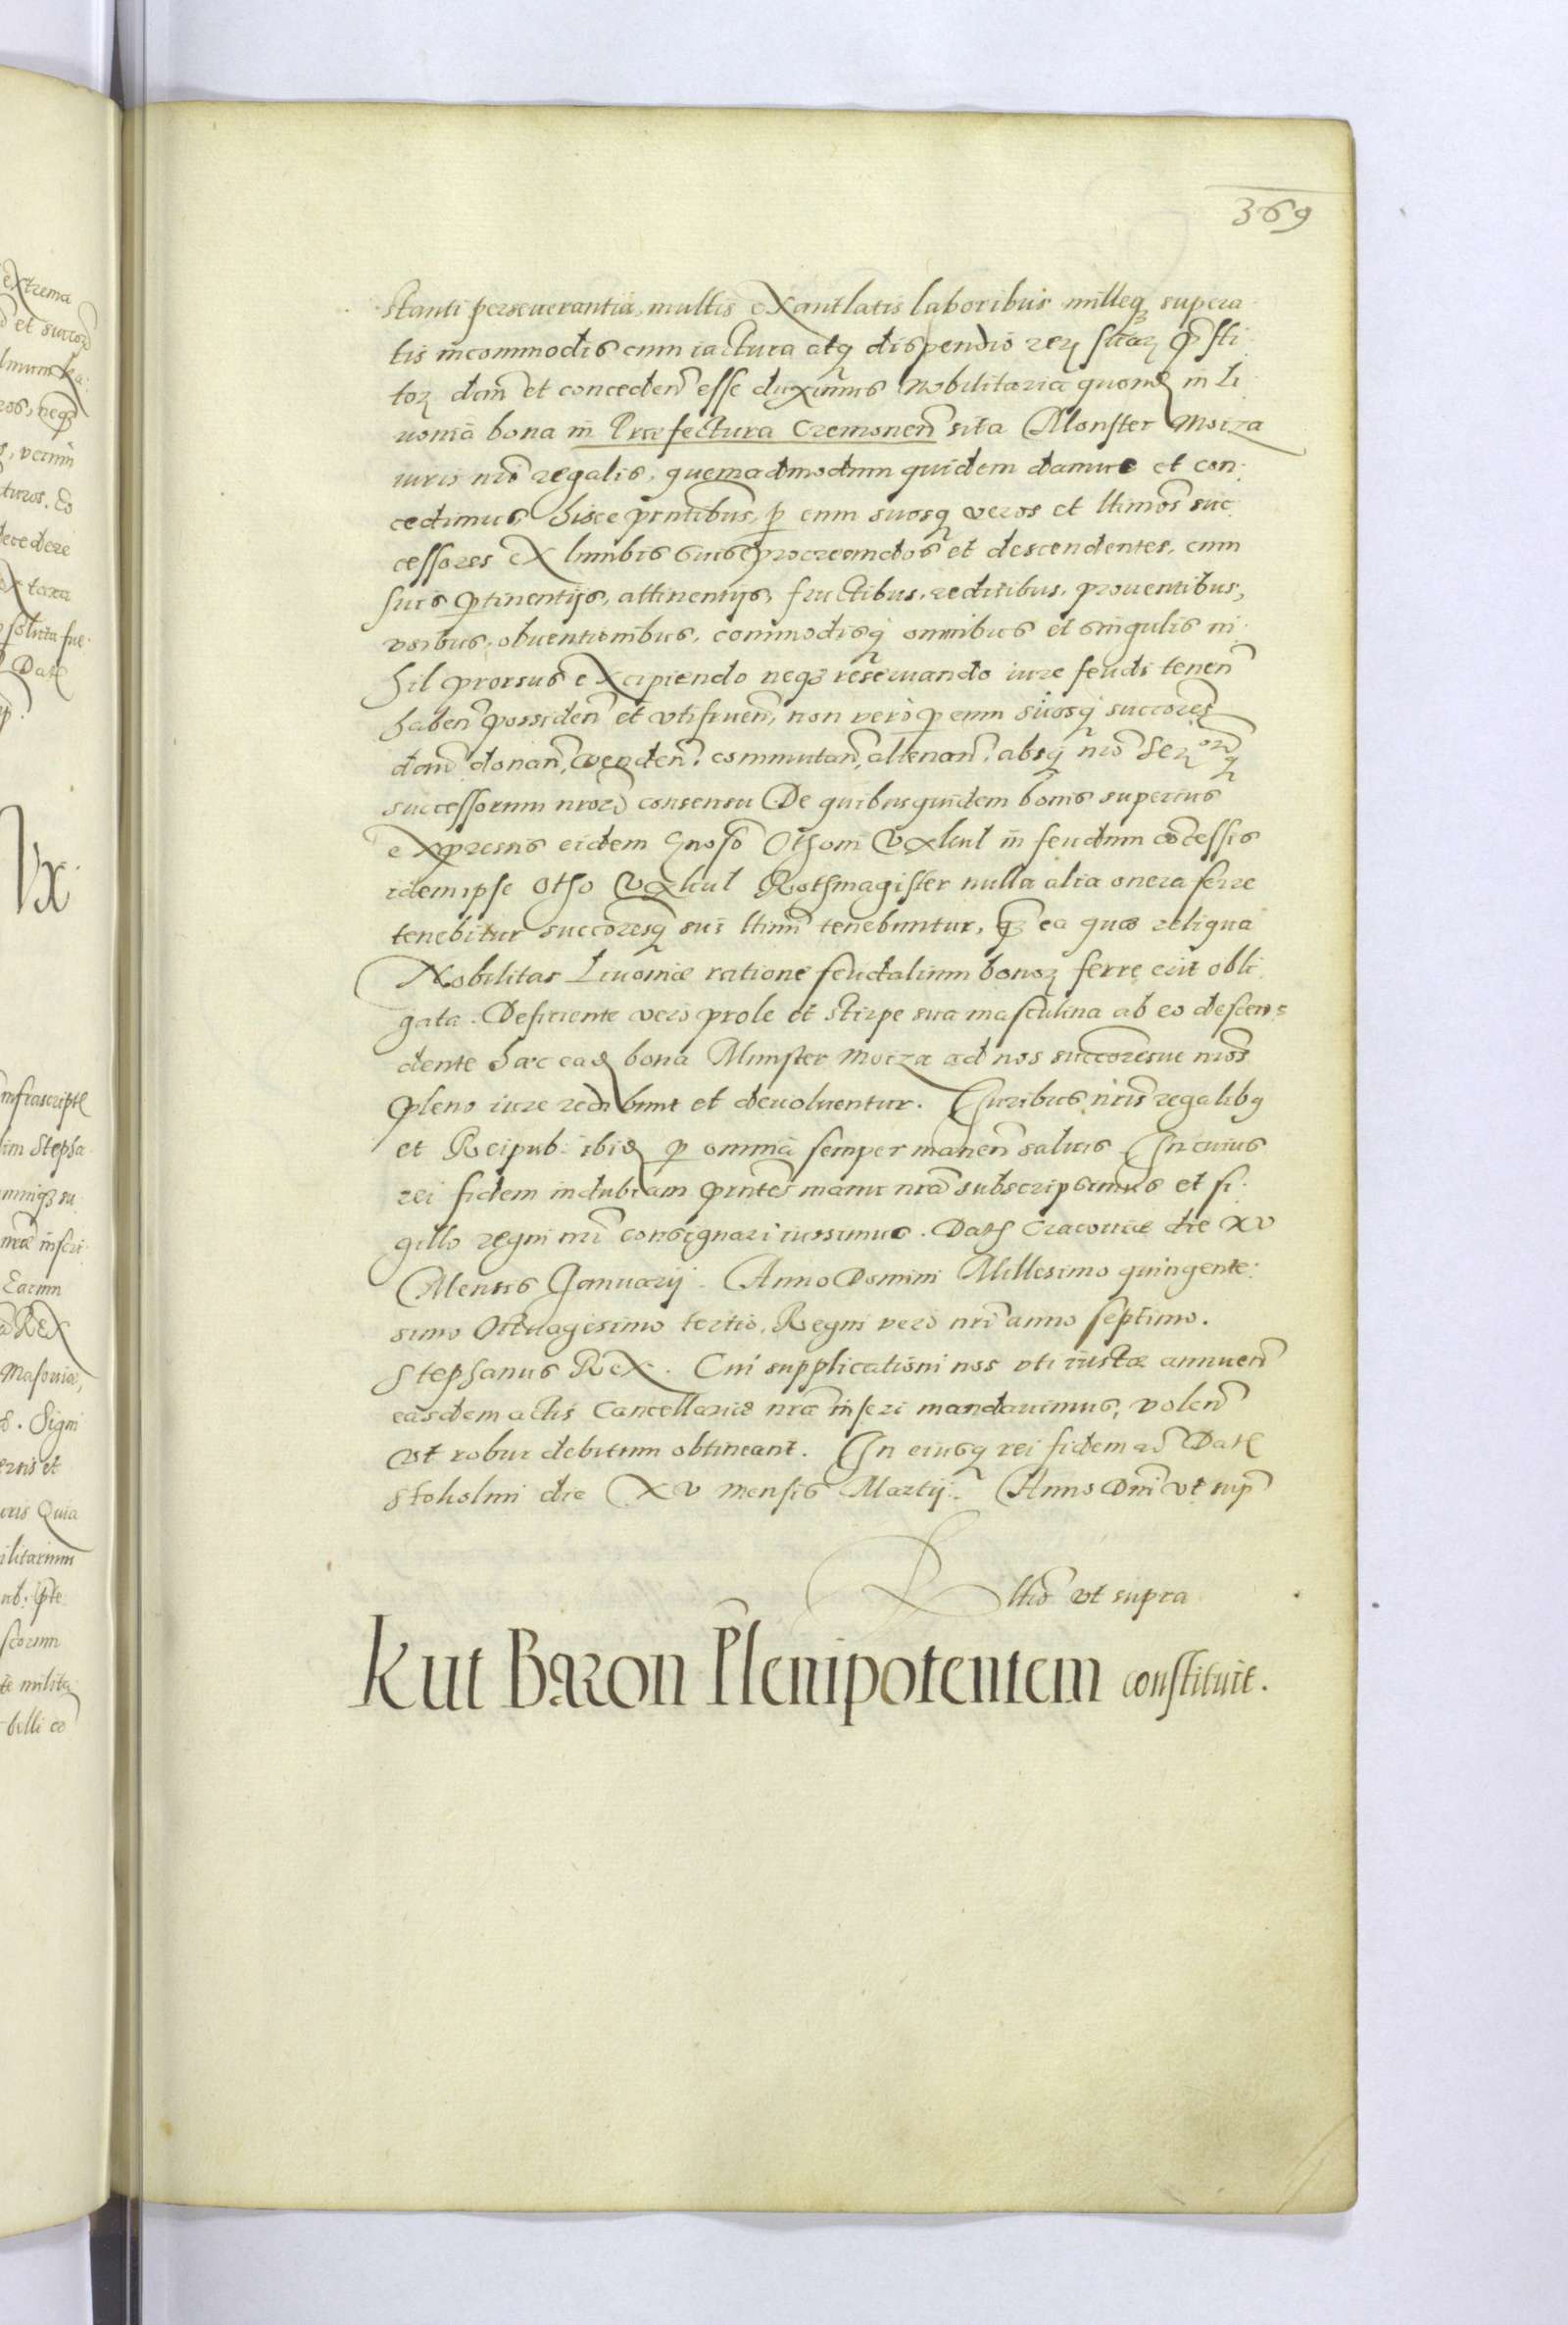 369
stanti perseuerantia, multis exantlatis laboribus milleq; supera
tis incommodis cum iactura atq; dispendio rer. suar. praesti
tor. dan̄ et conceden̄ esse duximus Nobilitaria quaed. in Li
uonia bona in Praefectura Cremonen̄ sita Monster Moiza
iuris nrī regalis, quemadmodum quidem damus et con
cedimus hisce prntibus, p eum suosq; veros et ltimos suc
cessores ex lumbis suis procreandos et descendentes, cum
suis ptinentijs, attinentijs, fructibus, reditibus, prouentibus,
vsibus, obuentionibus, commodisq; omnibus et singulis ni
hil prorsus excipiendo neq; reseruando iure feudi tenen̄
haben̄ possiden̄ et vtifruen̄, non vero p eum suosq; succores
dan̄ donan̄, venden̄, commutan̄, alienan̄, absq; nrō Ser.
successorum nrorū consensu De quibusquidem bonis superius
expressis eidem Gnoso Othoni Vxkul in feudum cōcessis
idem ipse Otho Vxkul Rothmagister nulla alia onera ferre
tenebitur succoresq; sui ltimi tenebuntur, q̄ ea quae reliqua
Nobilitas Liuoniae ratione feudalium bonor. ferre erit obli
gata. Deficiente vero prole et stirpe sua masculina ab eo descen=
dente haec ead. bona Munster Moiza ad nos succoresue nros
pleno iure redibunt et deuoluentur. Iuribus nris regalibg
et Reipub: ibid. p omnia semper manen̄ saluis In cuius
rei fidem indubiam pntes manu nra subscripsimus et si
gillo regni nrī consignari iussimus. Dat. Cracouiae die XV
Mensis Januarij. Anno Domini Millesimo quingente:
simo Octuagesimo tertio, Regni vero nrī anno septimo.
Stephanus Rex. Cui supplicationi nos vti iustae annuen̄
easdem actis Cancellariae nrae inseri mandauimus, volen̄
vt robur debitum obtineant. In eiusq; rei fidem &c. Dat.
Stokolmi die XV mensis Martij. Anno Dnī vt sup̄
Rltio vt supra
Kut Baron Plenipotentem constituit.